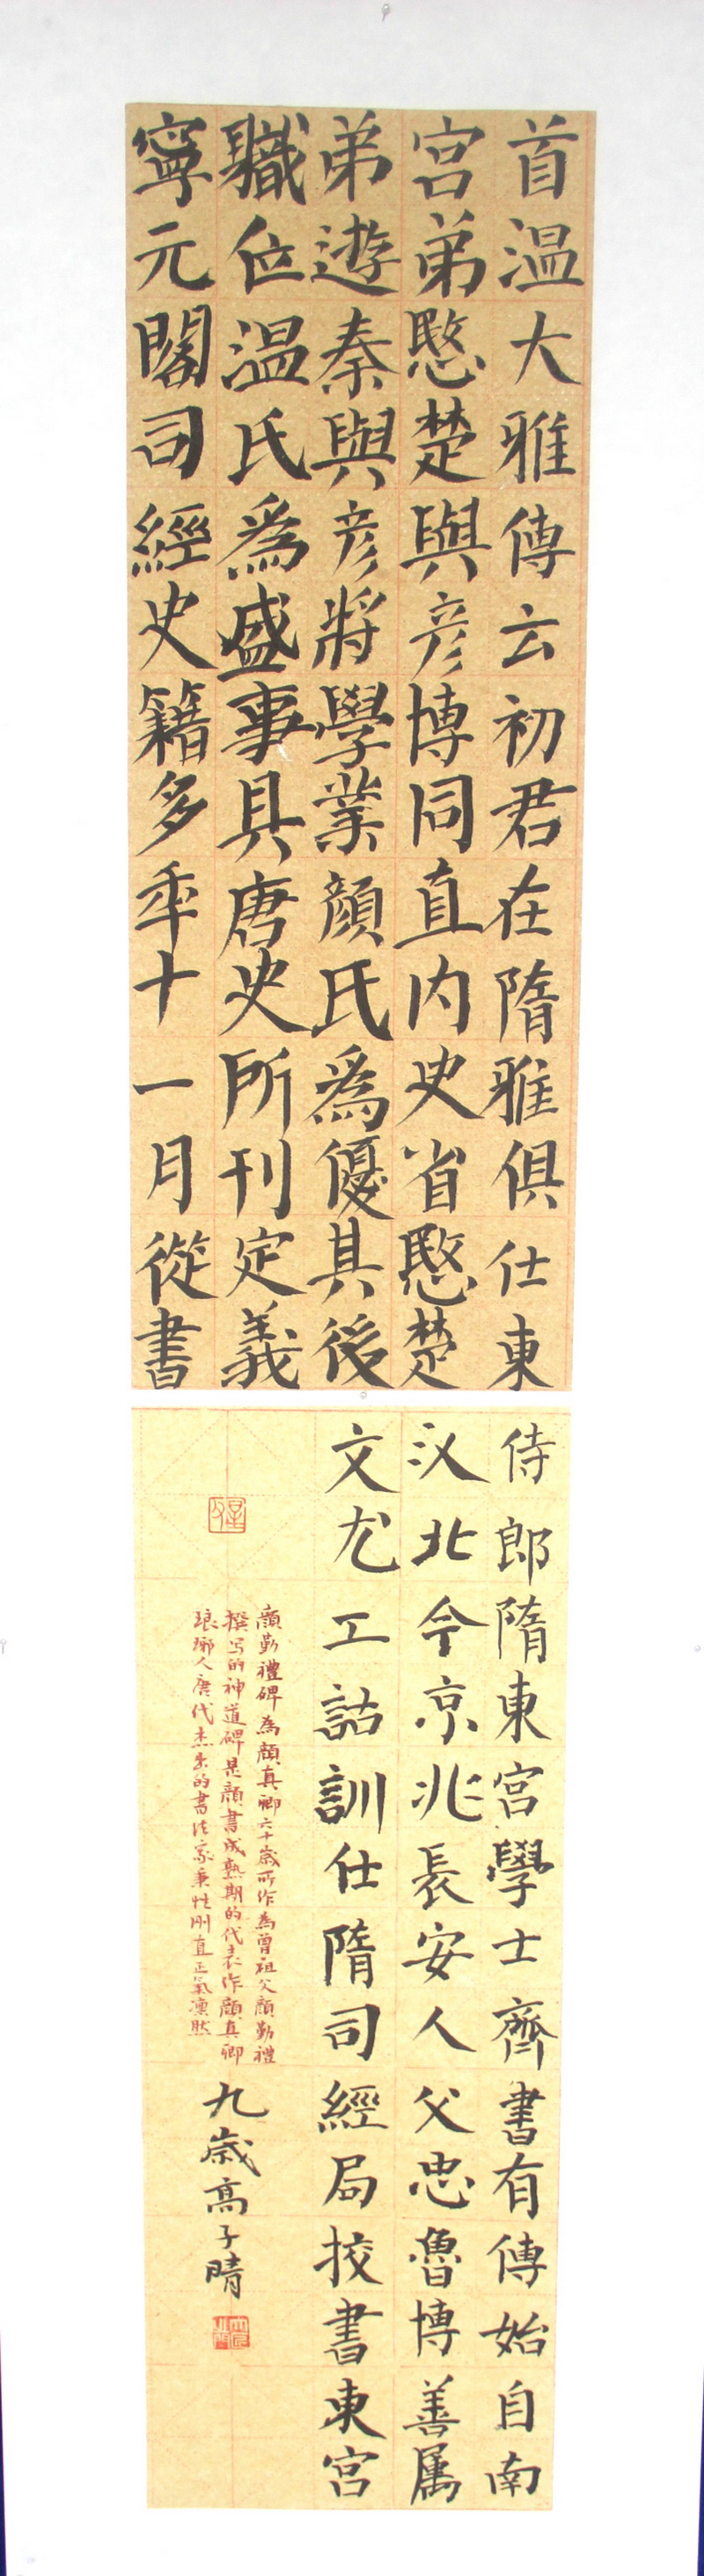 首温大雅傳云初君在隋雅俱仕東
宫弟愍楚與彦博同直内史省愍楚
弟遊秦與彦將學業顔氏為優其後
職位温氏為盛事具唐史所刊定義
寧元閣司經史籍多年十一月從書
侍郎隋東宫學士齊書有傳始自南
汉北今京兆長安人父忠魯博善属
文尤工詁訓仕隋司經局挍書東宫
顔勤禮碑為顔真卿六十歲所作為曾祖父顔勤禮
撰写的神道碑是顔書成熟期的代表作顔真卿
琅琊人唐代杰出的書法家秉性刚直正氣凛然
九歲高子晴